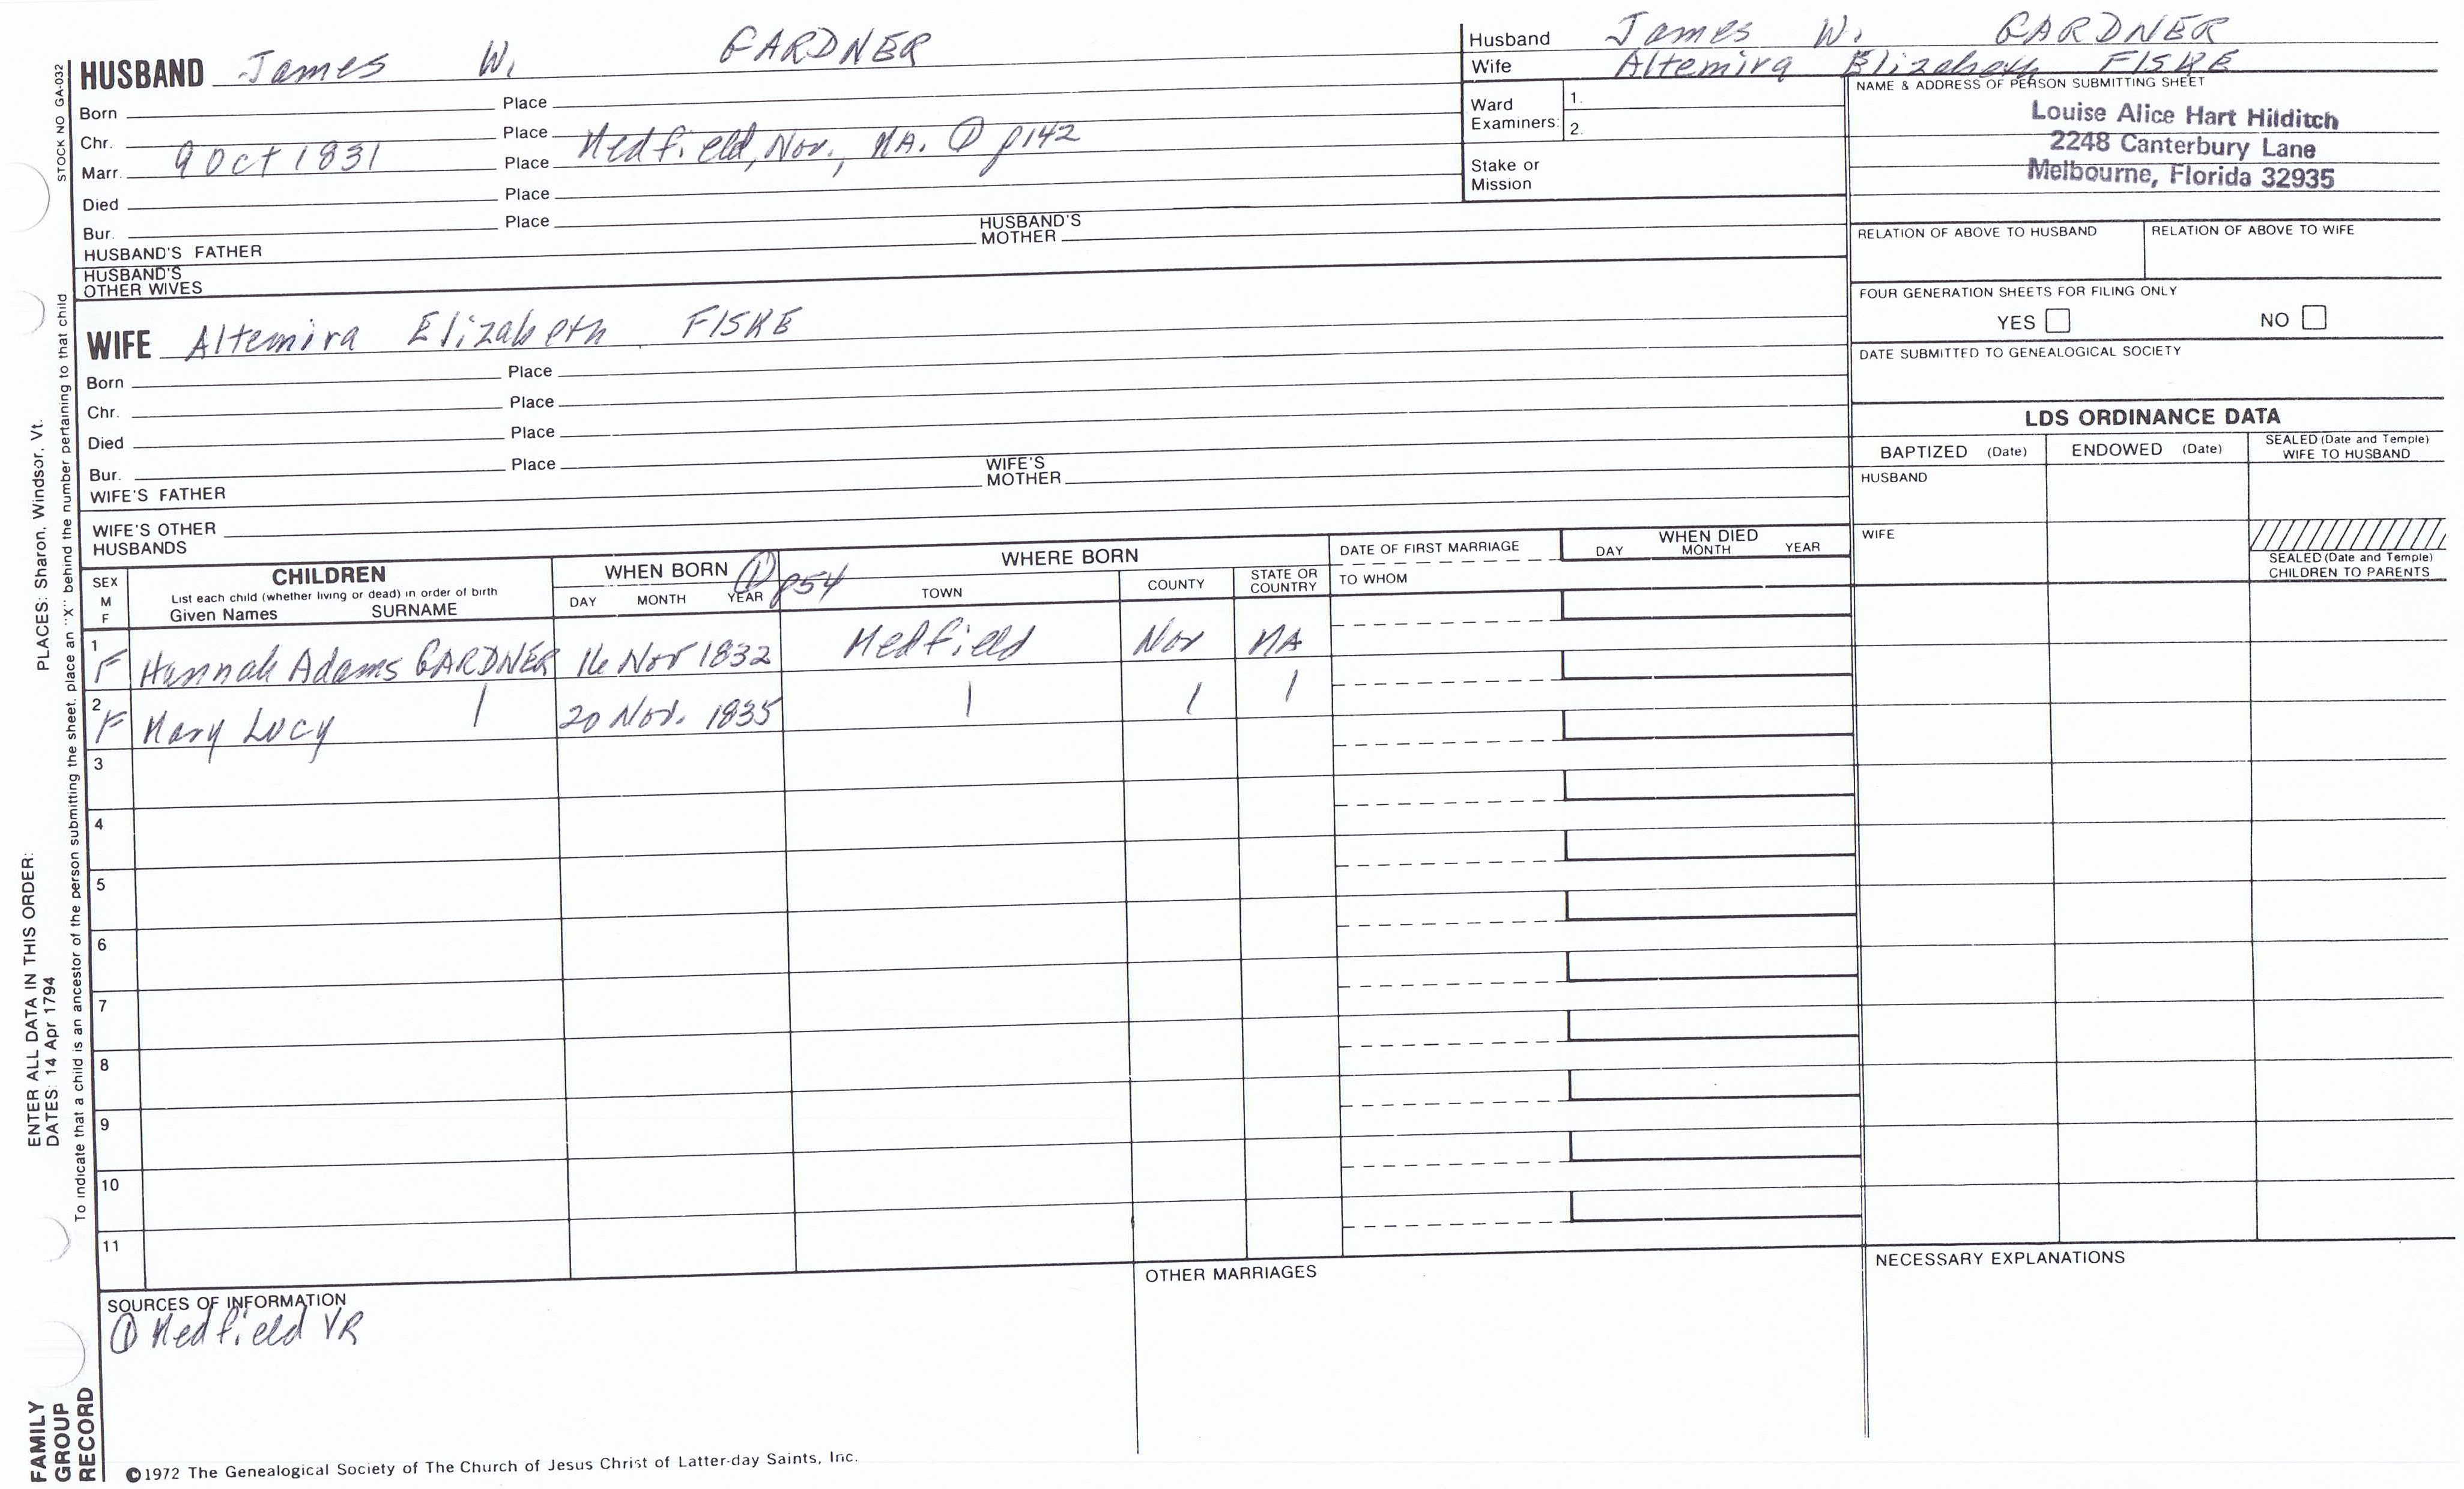 STOCK NO GA-032
HUSBAND James W. GARDNER
Born Place
Chr. Place
Marr. 9 Oct 1831 Place Medfield, Nor., MA. ① p142
Died Place
Bur. Place
HUSBAND'S FATHER HUSBAND'S MOTHER
HUSBAND'S OTHER WIVES
Husband James W. GARDNER
Wife Altemira Elizabeth FISKE
Ward Examiners: 1.
2.
Stake or Mission
NAME & ADDRESS OF PERSON SUBMITTING SHEET
Louise Alice Hart Hilditch
2248 Canterbury Lane
Melbourne, Florida 32935
RELATION OF ABOVE TO HUSBAND RELATION OF ABOVE TO WIFE
FOUR GENERATION SHEETS FOR FILING ONLY
YES NO
DATE SUBMITTED TO GENEALOGICAL SOCIETY
WIFE Altemira Elizabeth FISKE
Born Place
Chr. Place
Died Place
Bur. Place
WIFE'S FATHER WIFE'S MOTHER
WIFE'S OTHER HUSBANDS
LDS ORDINANCE DATA
BAPTIZED (Date) ENDOWED (Date) SEALED (Date and Temple) WIFE TO HUSBAND
HUSBAND
WIFE
SEALED (Date and Temple) CHILDREN TO PARENTS
SEX M F
CHILDREN
List each child (whether living or dead) in order of birth
Given Names SURNAME
WHEN BORN ① p54
DAY MONTH YEAR
WHERE BORN
TOWN COUNTY STATE OR COUNTRY
DATE OF FIRST MARRIAGE
TO WHOM
WHEN DIED
DAY MONTH YEAR
1 F Hannah Adams GARDNER 16 Nov 1832 Medfield Nor MA
2 F Mary Lucy | 20 Nov. 1835 | | |
3
4
5
6
7
8
9
10
11
SOURCES OF INFORMATION
① Medfield VR
OTHER MARRIAGES
NECESSARY EXPLANATIONS
©1972 The Genealogical Society of The Church of Jesus Christ of Latter-day Saints, Inc.
FAMILY GROUP RECORD
ENTER ALL DATA IN THIS ORDER:
DATES: 14 Apr 1794
PLACES: Sharon, Windsor, Vt.
To indicate that a child is an ancestor of the person submitting the sheet, place an "X" behind the number pertaining to that child